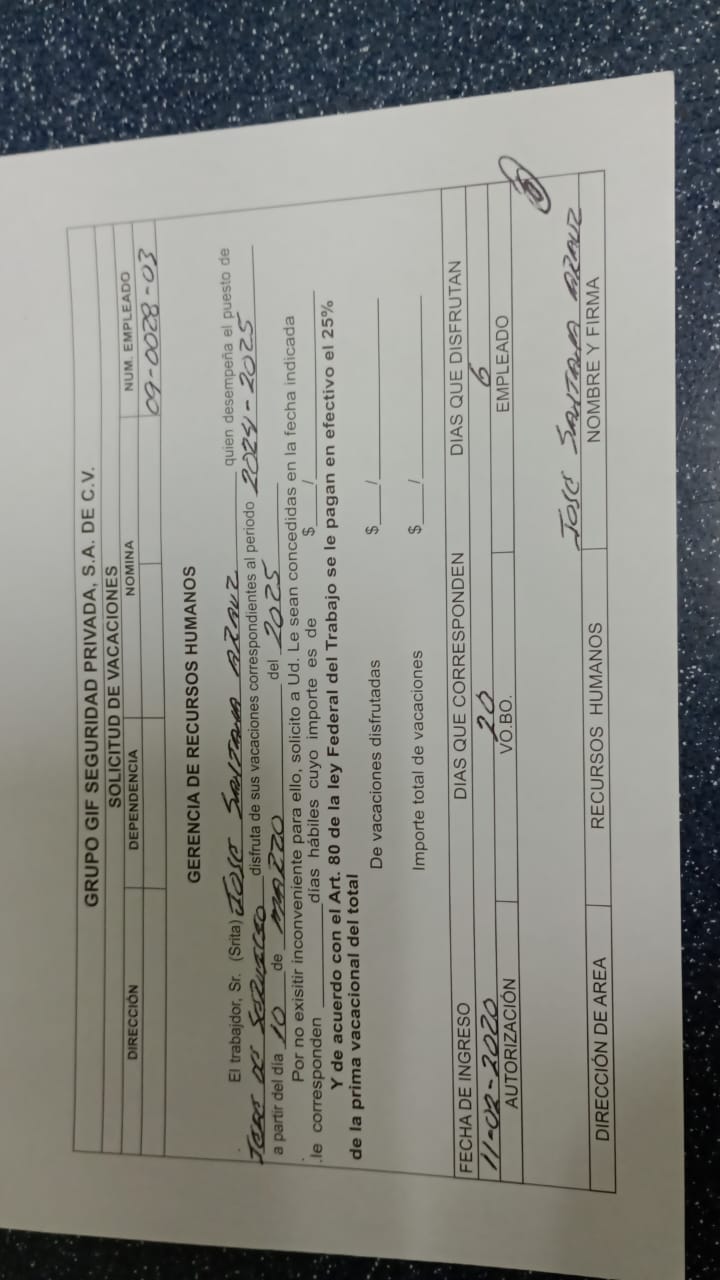 GRUPO GIF SEGURIDAD PRIVADA, S.A. DE C.V.
SOLICITUD DE VACACIONES
DIRECCIÓN DEPENDENCIA NOMINA NUM. EMPLEADO
09-0028-03
GERENCIA DE RECURSOS HUMANOS
El trabajdor, Sr. (Srita) JOSE SANTANA ARAUZ quien desempeña el puesto de
JEFE DE SERVICIO disfruta de sus vacaciones correspondientes al periodo 2024-2025
a partir del día 10 de MARZO del 2025
Por no exisitir inconveniente para ello, solicito a Ud. Le sean concedidas en la fecha indicada
.le corresponden ____ días hábiles cuyo importe es de $___/____
Y de acuerdo con el Art. 80 de la ley Federal del Trabajo se le pagan en efectivo el 25%
de la prima vacacional del total
De vacaciones disfrutadas $___/____
Importe total de vacaciones $___/____
FECHA DE INGRESO DIAS QUE CORRESPONDEN DIAS QUE DISFRUTAN
11-02-2020 20 6
AUTORIZACIÓN VO.BO. EMPLEADO
JOSE SANTANA ARAUZ
DIRECCIÓN DE AREA RECURSOS HUMANOS NOMBRE Y FIRMA